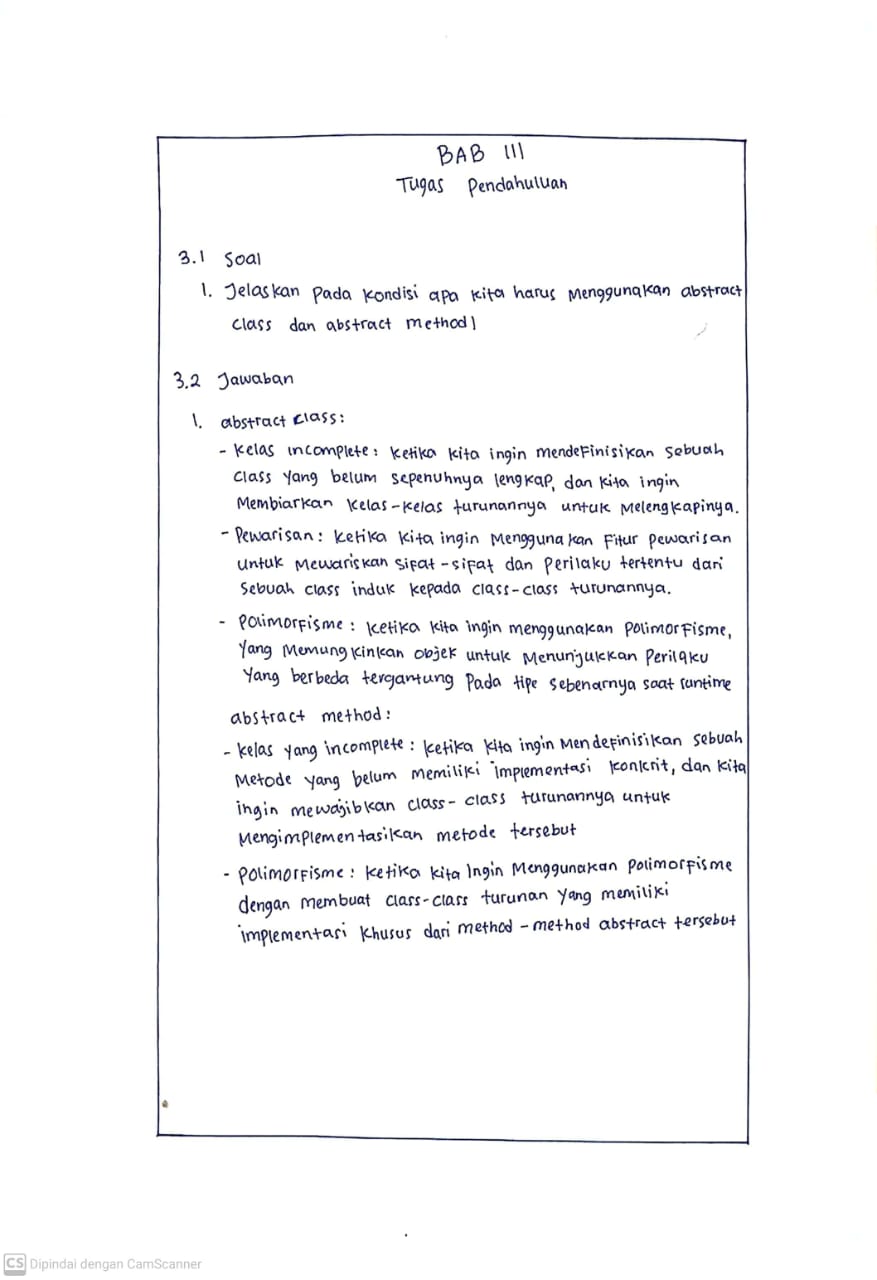 BAB III
Tugas Pendahuluan
3.1 Soal
1. Jelaskan Pada Kondisi apa Kita harus Menggunakan abstract
Class dan abstract method!
3.2 Jawaban
1. abstract class:
- Kelas incomplete: Ketika kita ingin mendefinisikan Sebuah
Class yang belum sepenuhnya lengkap, dan kita ingin
Membiarkan Kelas-Kelas turunannya untuk Melengkapinya.
- Pewarisan: Ketika Kita ingin Menggunakan Fitur Pewarisan
untuk Mewariskan Sifat-sifat dan Perilaku tertentu dari
Sebuah class induk kepada class-class turunannya.
- Polimorfisme: Ketika Kita ingin menggunakan Polimorfisme,
Yang Memungkinkan objek untuk Menunjukkan Perilaku
Yang berbeda tergantung Pada tipe Sebenarnya saat runtime
abstract method:
- Kelas yang incomplete: Ketika Kita ingin Mendefinisikan Sebuah
Metode yang belum memiliki implementasi konkrit, dan kita
ingin mewajibkan class-class turunannya untuk
Mengimplementasikan metode tersebut
- Polimorfisme: Ketika Kita Ingin Menggunakan Polimorfisme
dengan membuat class-class turunan yang memiliki
implementasi Khusus dari method-method abstract tersebut
CS Dipindai dengan CamScanner